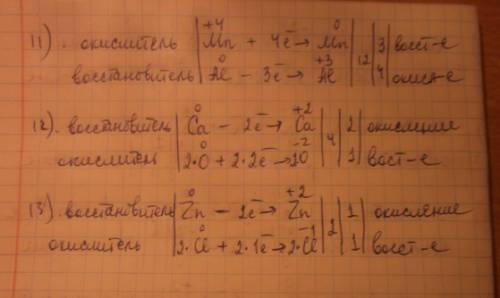 11). окислитель | +4 Mn + 4ē → 0 Mn | 12 | 3 | восст-е
восстановитель | 0 Al − 3ē → +3 Al | 4 | окисл-е
12). восстановитель | 0 Ca − 2ē → +2 Ca | 4 | 2 | окисление
окислител | 2·0 O + 2·2ē → 2 -2 O | 1 | восст-е
13). восстановитель | 0 Zn − 2ē → +2 Zn | 2 | 1 | окисление
окислитель | 2·0 Cl + 2·1ē → 2·-1 Cl | 1 | восст-е